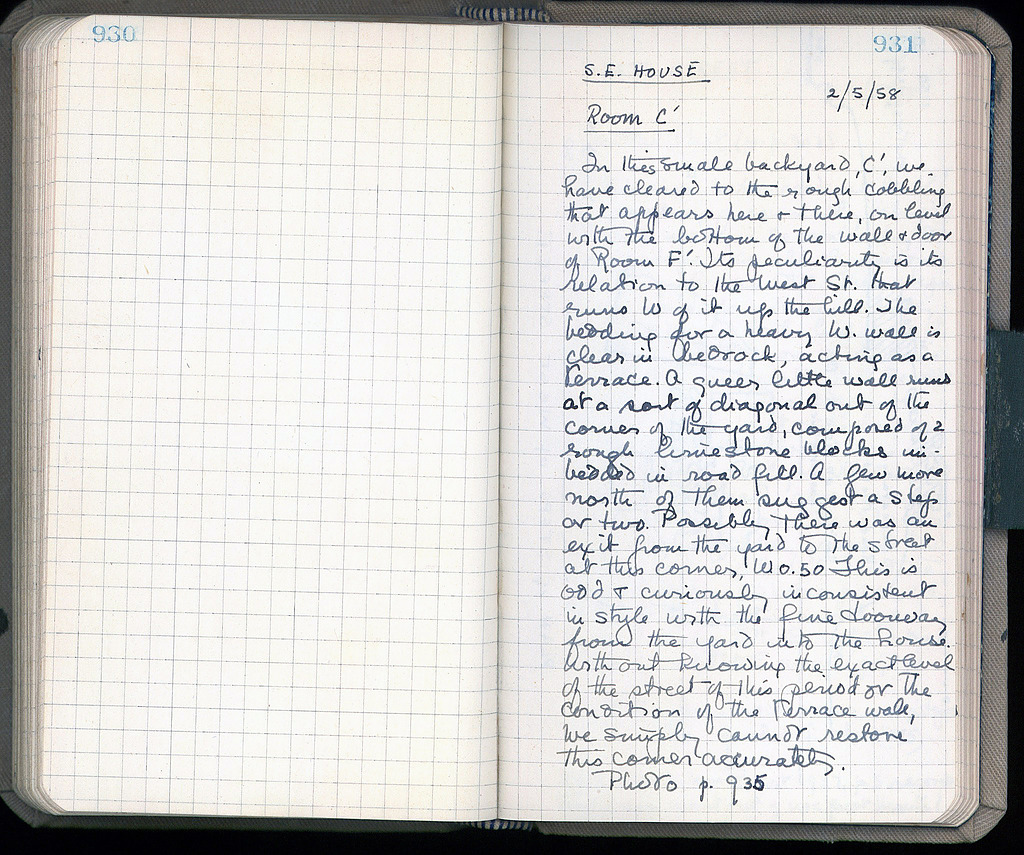 930
931
S.E. HOUSE
2/5/58
Room C'
In this small backyard, C', we
have cleared to the rough cobbling
that appears here + there, on level
with the bottom of the wall + door
of Room F'. Its peculiarity is its
relation to the West St. that
runs W of it up the hill. The
bedding for a heavy W. wall is
clear in bedrock, acting as a
Terrace. A queer little wall runs
at a sort of diagonal out of the
corner of the yard, composed of 2
rough limestone blocks im-
bedded in road fill. A few more
north of them suggest a step
or two. Possibly there was an
exit from the yard to the street
at this corner, W 0.50 This is
odd + curiously inconsistent
in style with the fine doorway
from the yard into the house.
Without knowing the exact level
of the street of this period or the
condition of the Terrace wall,
we simply cannot restore
this corner accurately.
Photo p. 935